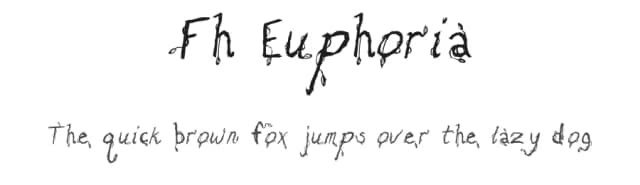 Fh Euphoria
The quick brown fox jumps over the lazy dog